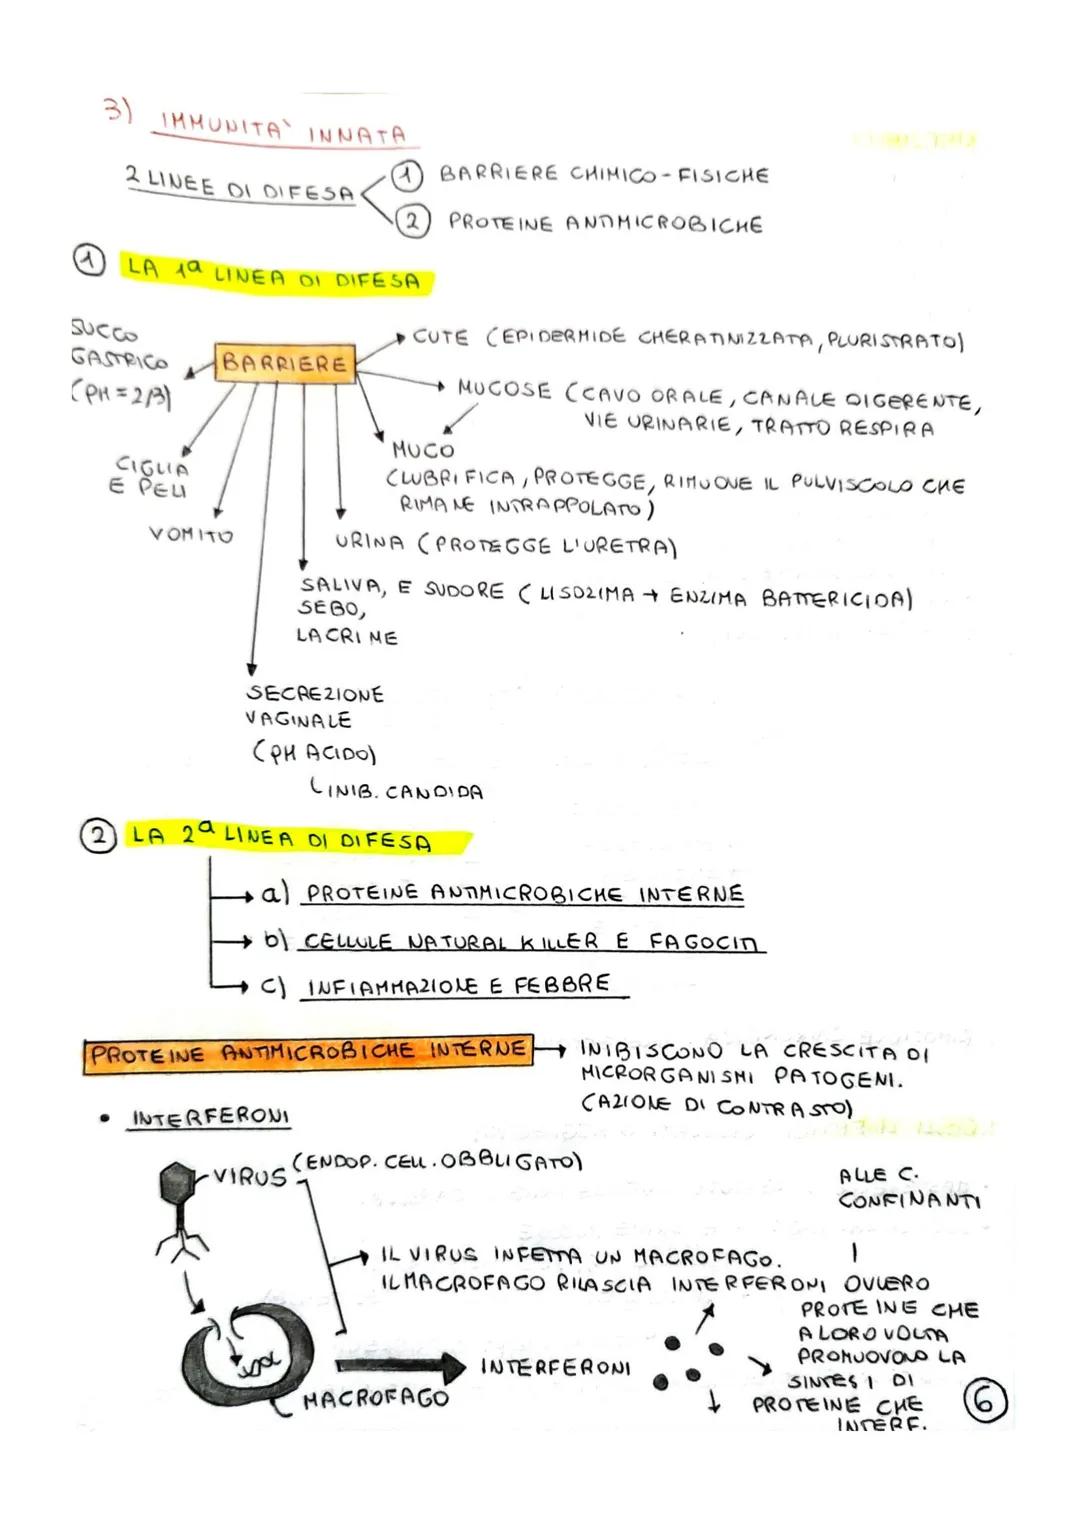 3) IMMUNITA' INNATA
2 LINEE DI DIFESA
1 BARRIERE CHIMICO-FISICHE
2 PROTEINE ANTIMICROBICHE
1 LA 1ª LINEA DI DIFESA
BARRIERE
SUCCO
GASTRICO
(PH=2/3)
CUTE (EPIDERMIDE CHERATINIZZATA, PLURISTRATO)
MUCOSE (CAVO ORALE, CANALE DIGERENTE,
VIE URINARIE, TRATTO RESPIRA
MUCO
(LUBRIFICA, PROTEGGE, RIMUOVE IL PULVISCOLO CHE
RIMANE INTRAPPOLATO)
CIGLIA
E PELI
VOMITO
URINA (PROTEGGE L'URETRA)
SALIVA, E SUDORE (LISOZIMA → ENZIMA BATTERICIDA)
SEBO,
LACRIME
SECREZIONE
VAGINALE
(PH ACIDO)
INIB. CANDIDA
2 LA 2ª LINEA DI DIFESA
a) PROTEINE ANTIMICROBICHE INTERNE
b) CELLULE NATURAL KILLER E FAGOCITI
c) INFIAMMAZIONE E FEBBRE
PROTEINE ANTIMICROBICHE INTERNE → INIBISCONO LA CRESCITA DI
MICRORGANISMI PATOGENI.
(AZIONE DI CONTRASTO)
• INTERFERONI
VIRUS (ENDOP. CELL. OBBLIGATO)
ALLE C.
CONFINANTI
IL VIRUS INFETTA UN MACROFAGO.
IL MACROFAGO RILASCIA INTERFERONI OVVERO
PROTEINE CHE
A LORO VOLTA
PROMUOVONO LA
SINTESI DI
PROTEINE CHE
INTERF.
INTERFERONI
MACROFAGO
6